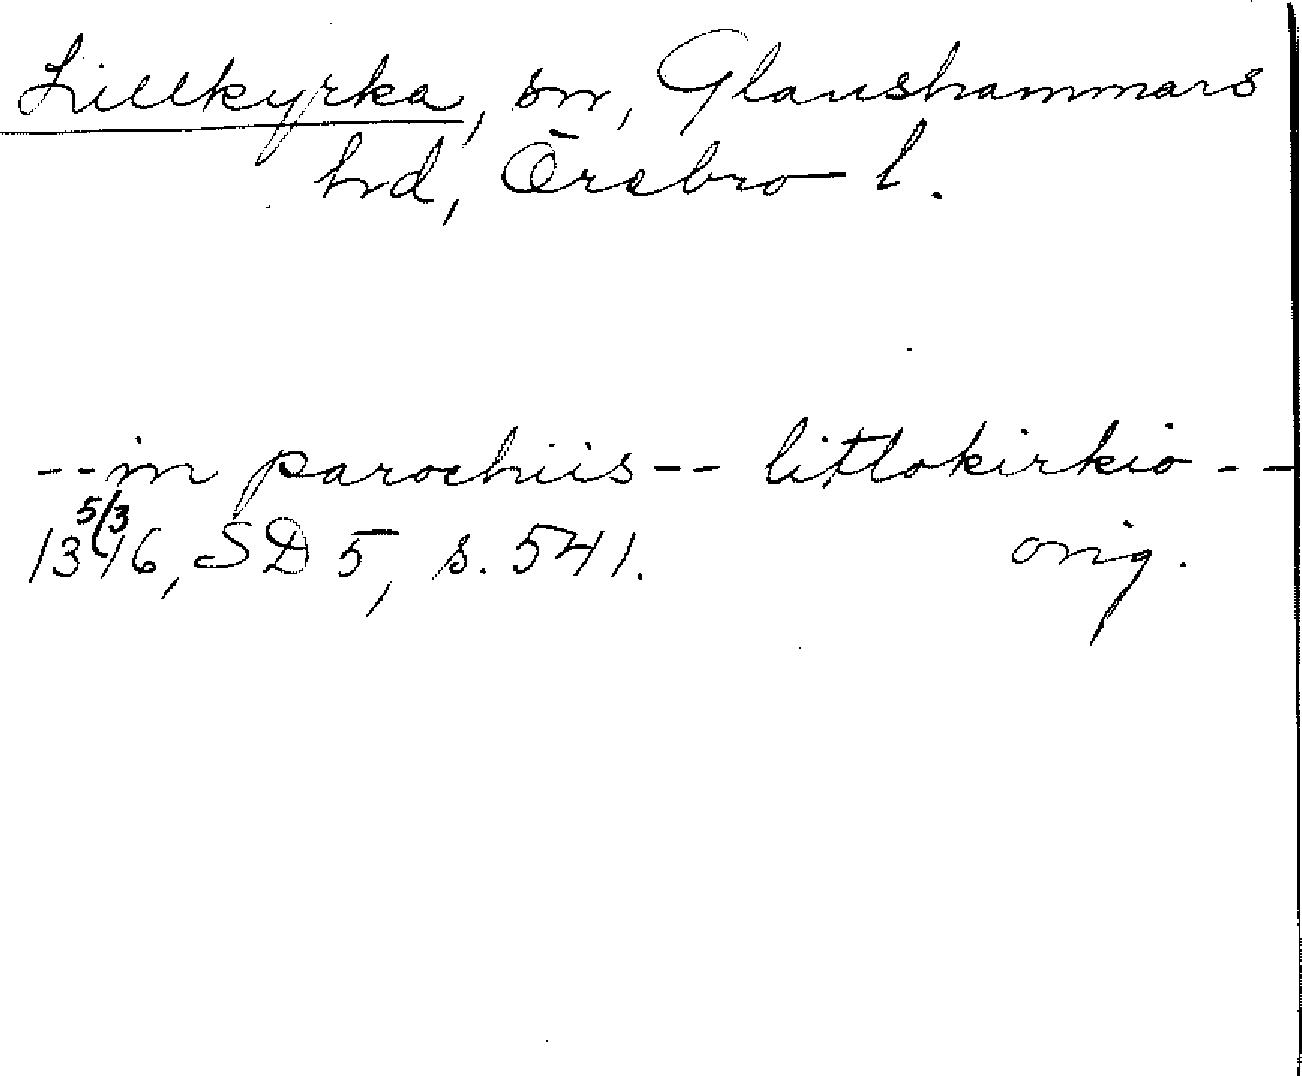 Lillkyrka, sn, Glanshammars
hrd, Örebro l.
--in parochiis -- litlokirkio --
5/3
1346, SD 5, s. 541. orig.